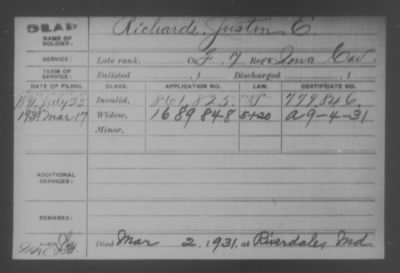 DEAD
NAME OF SOLDIER: Richards, Justin E.
SERVICE: Late rank, Co F, 7 Reg't Iowa Cav.
TERM OF SERVICE: Enlisted , 1 Discharged , 1
DATE OF FILING. CLASS. APPLICATION NO. LAW. CERTIFICATE NO.
1891 July 23 Invalid, 861.823. 779.816.
1931 Mar 17 Widow, 1689848 5+20 A 9-4-31
Minor,
ADDITIONAL SERVICES:
REMARKS:
Died Mar 2, 1931, at Riverdale, Md